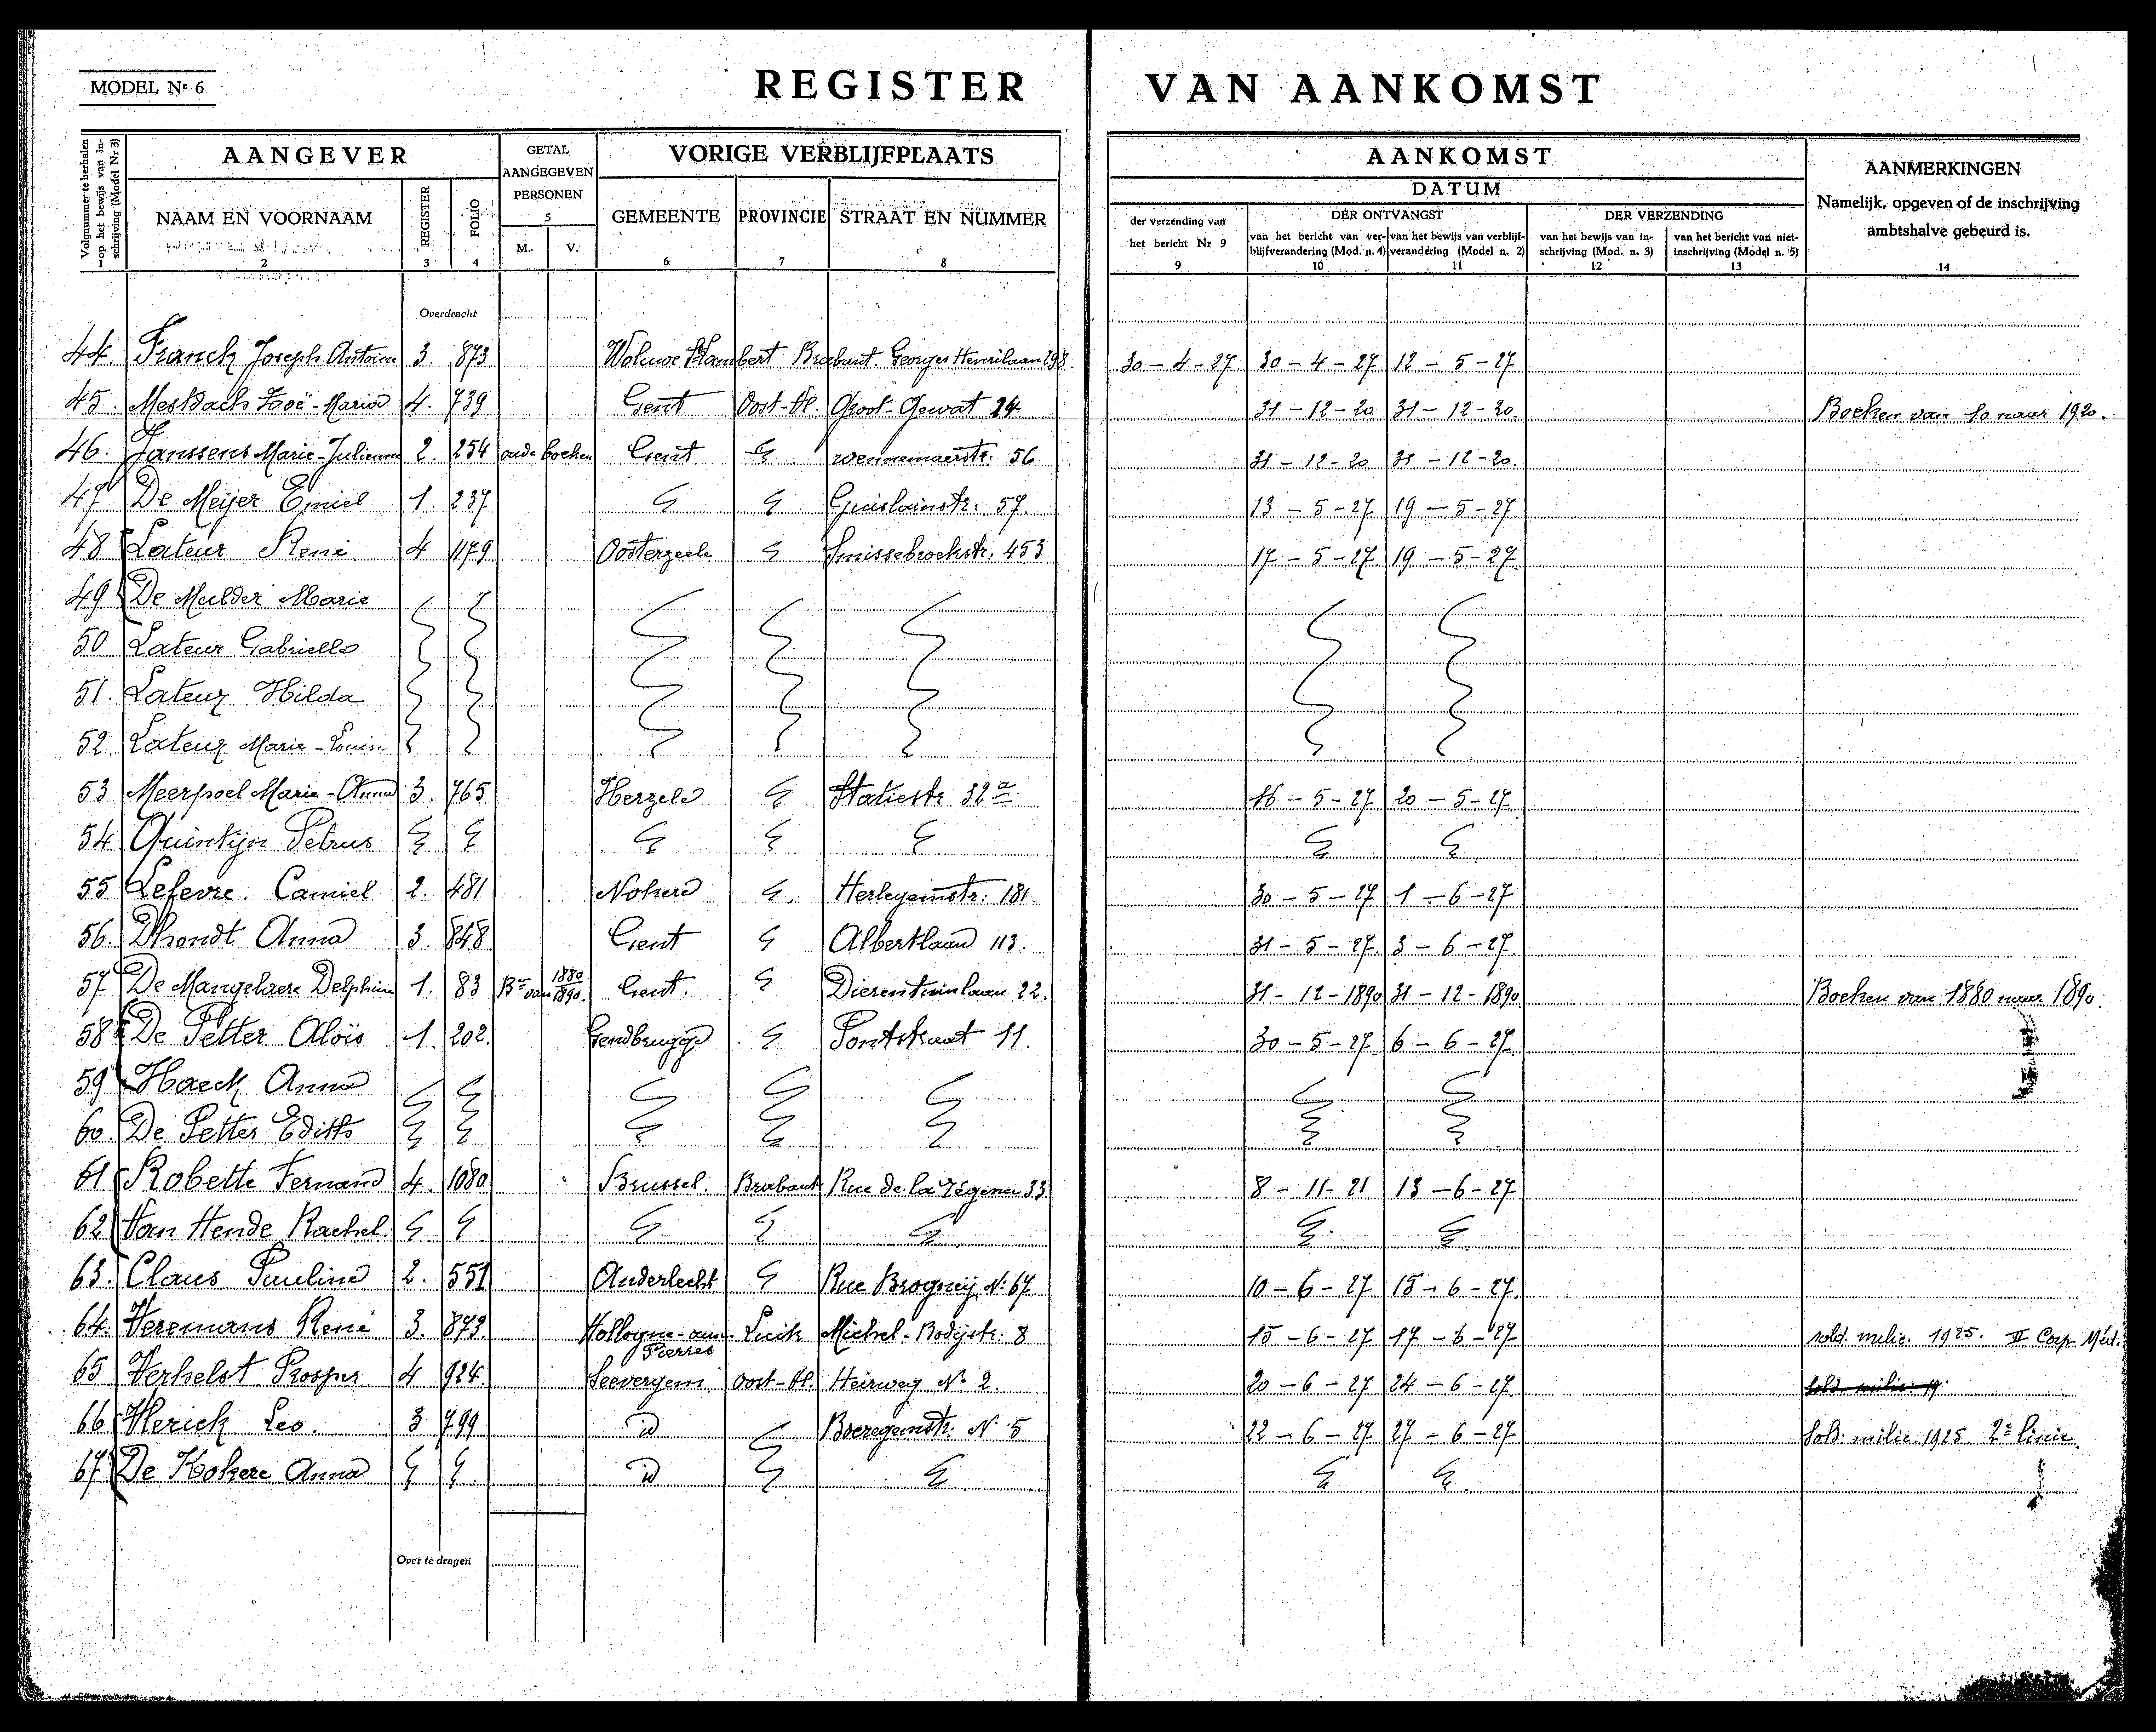 MODEL Nr 6
REGISTER VAN AANKOMST
Volgnummer te herhalen op het bewijs van inschrijving (Model Nr 3)
AANGEVER
GETAL AANGEGEVEN PERSONEN
5
VORIGE VERBLIJFPLAATS
AANKOMST
DATUM
AANMERKINGEN
Namelijk, opgeven of de inschrijving ambtshalve gebeurd is.
NAAM EN VOORNAAM REGISTER FOLIO M. V. GEMEENTE PROVINCIE STRAAT EN NUMMER
der verzending van het bericht Nr 9
DER ONTVANGST
van het bericht van verblijfverandering (Mod. n. 4)
van het bewijs van verblijfverandering (Model n. 2)
DER VERZENDING
van het bewijs van inschrijving (Mod. n. 3)
van het bericht van niet-inschrijving (Model n. 5)
1 2 3 4 6 7 8 9 10 11 12 13 14
Overdracht
44. Franck Joseph Antoine 3. 873 Woluwe St Lambert Brabant. Georges Henrilaan 298. 30-4-27. 30-4-27 12-5-27
45. Mesdach Zoë-Maria 4. 739 Gent Oost-Vl. Groot-Gewat 24 31-12-20 31-12-20. Boeken van 10 naar 1920.
46. Janssens Marie-Julienne 2. 254 oude boeken Gent wennemaerstr. 56 31-12-20 31-12-20.
47 De Meijer Emiel 1. 237. Guislainstr: 57 13-5-27 19-5-27.
48 Lateur René 4 1179 Oosterzeele Smissebroekstr. 453 17-5-27 19-5-27
49 De Mulder Marie
50 Lateur Gabrielle
51. Lateur Hilda
52. Lateur Marie-Louise
53 Meerpoel Marie-Anna 3. 765 Herzele Statiestr 32a 16-5-27 20-5-27
54. Quintijn Petrus
55 Lefevre. Camiel 2. 481 Nokere Herlegemstr: 181. 30-5-27 1-6-27
56. Dhondt Anna 3. 848 Gent Albertlaan 113. 31-5-27. 3-6-27.
57 De Mangelaere Delphine 1. 83 Bn van 1880 1890. Gent. Dierentuinlaan 22. 31-12-1890 31-12-1890. Boeken van 1880 naar 1890.
58 De Petter Aloïs 1. 202. Gendbrugge Pontstraat 11. 30-5-27. 6-6-27.
59 Haeck Anna
60. De Petter Edith
61 Robette Fernand 4. 1080 Brussel. Brabant Rue de la régence 33 8-11-21 13-6-27
62 Van Hende Rachel.
63. Claus Pauline 2. 551 Anderlecht Rue Brogniej N: 67 10-6-27 15-6-27.
64. Veremans René 3. 873. Hollogne-aux-Pierres Luik Michel-Bodijstr. 8 15-6-27 17-6-27 sold. milic. 1925. II Corp. Méd.
65 Verhelst Prosper 4 924. Seevergem Oost-Vl. Heirweg No 2. 20-6-27 24-6-27. sold. milic. 19
66 Herick Leo. 3 799 id Boeregemstr. No 5 22-6-27 27-6-27 sold: milic. 1925. 2e linie.
67 De Kokere Anna id
Over te dragen